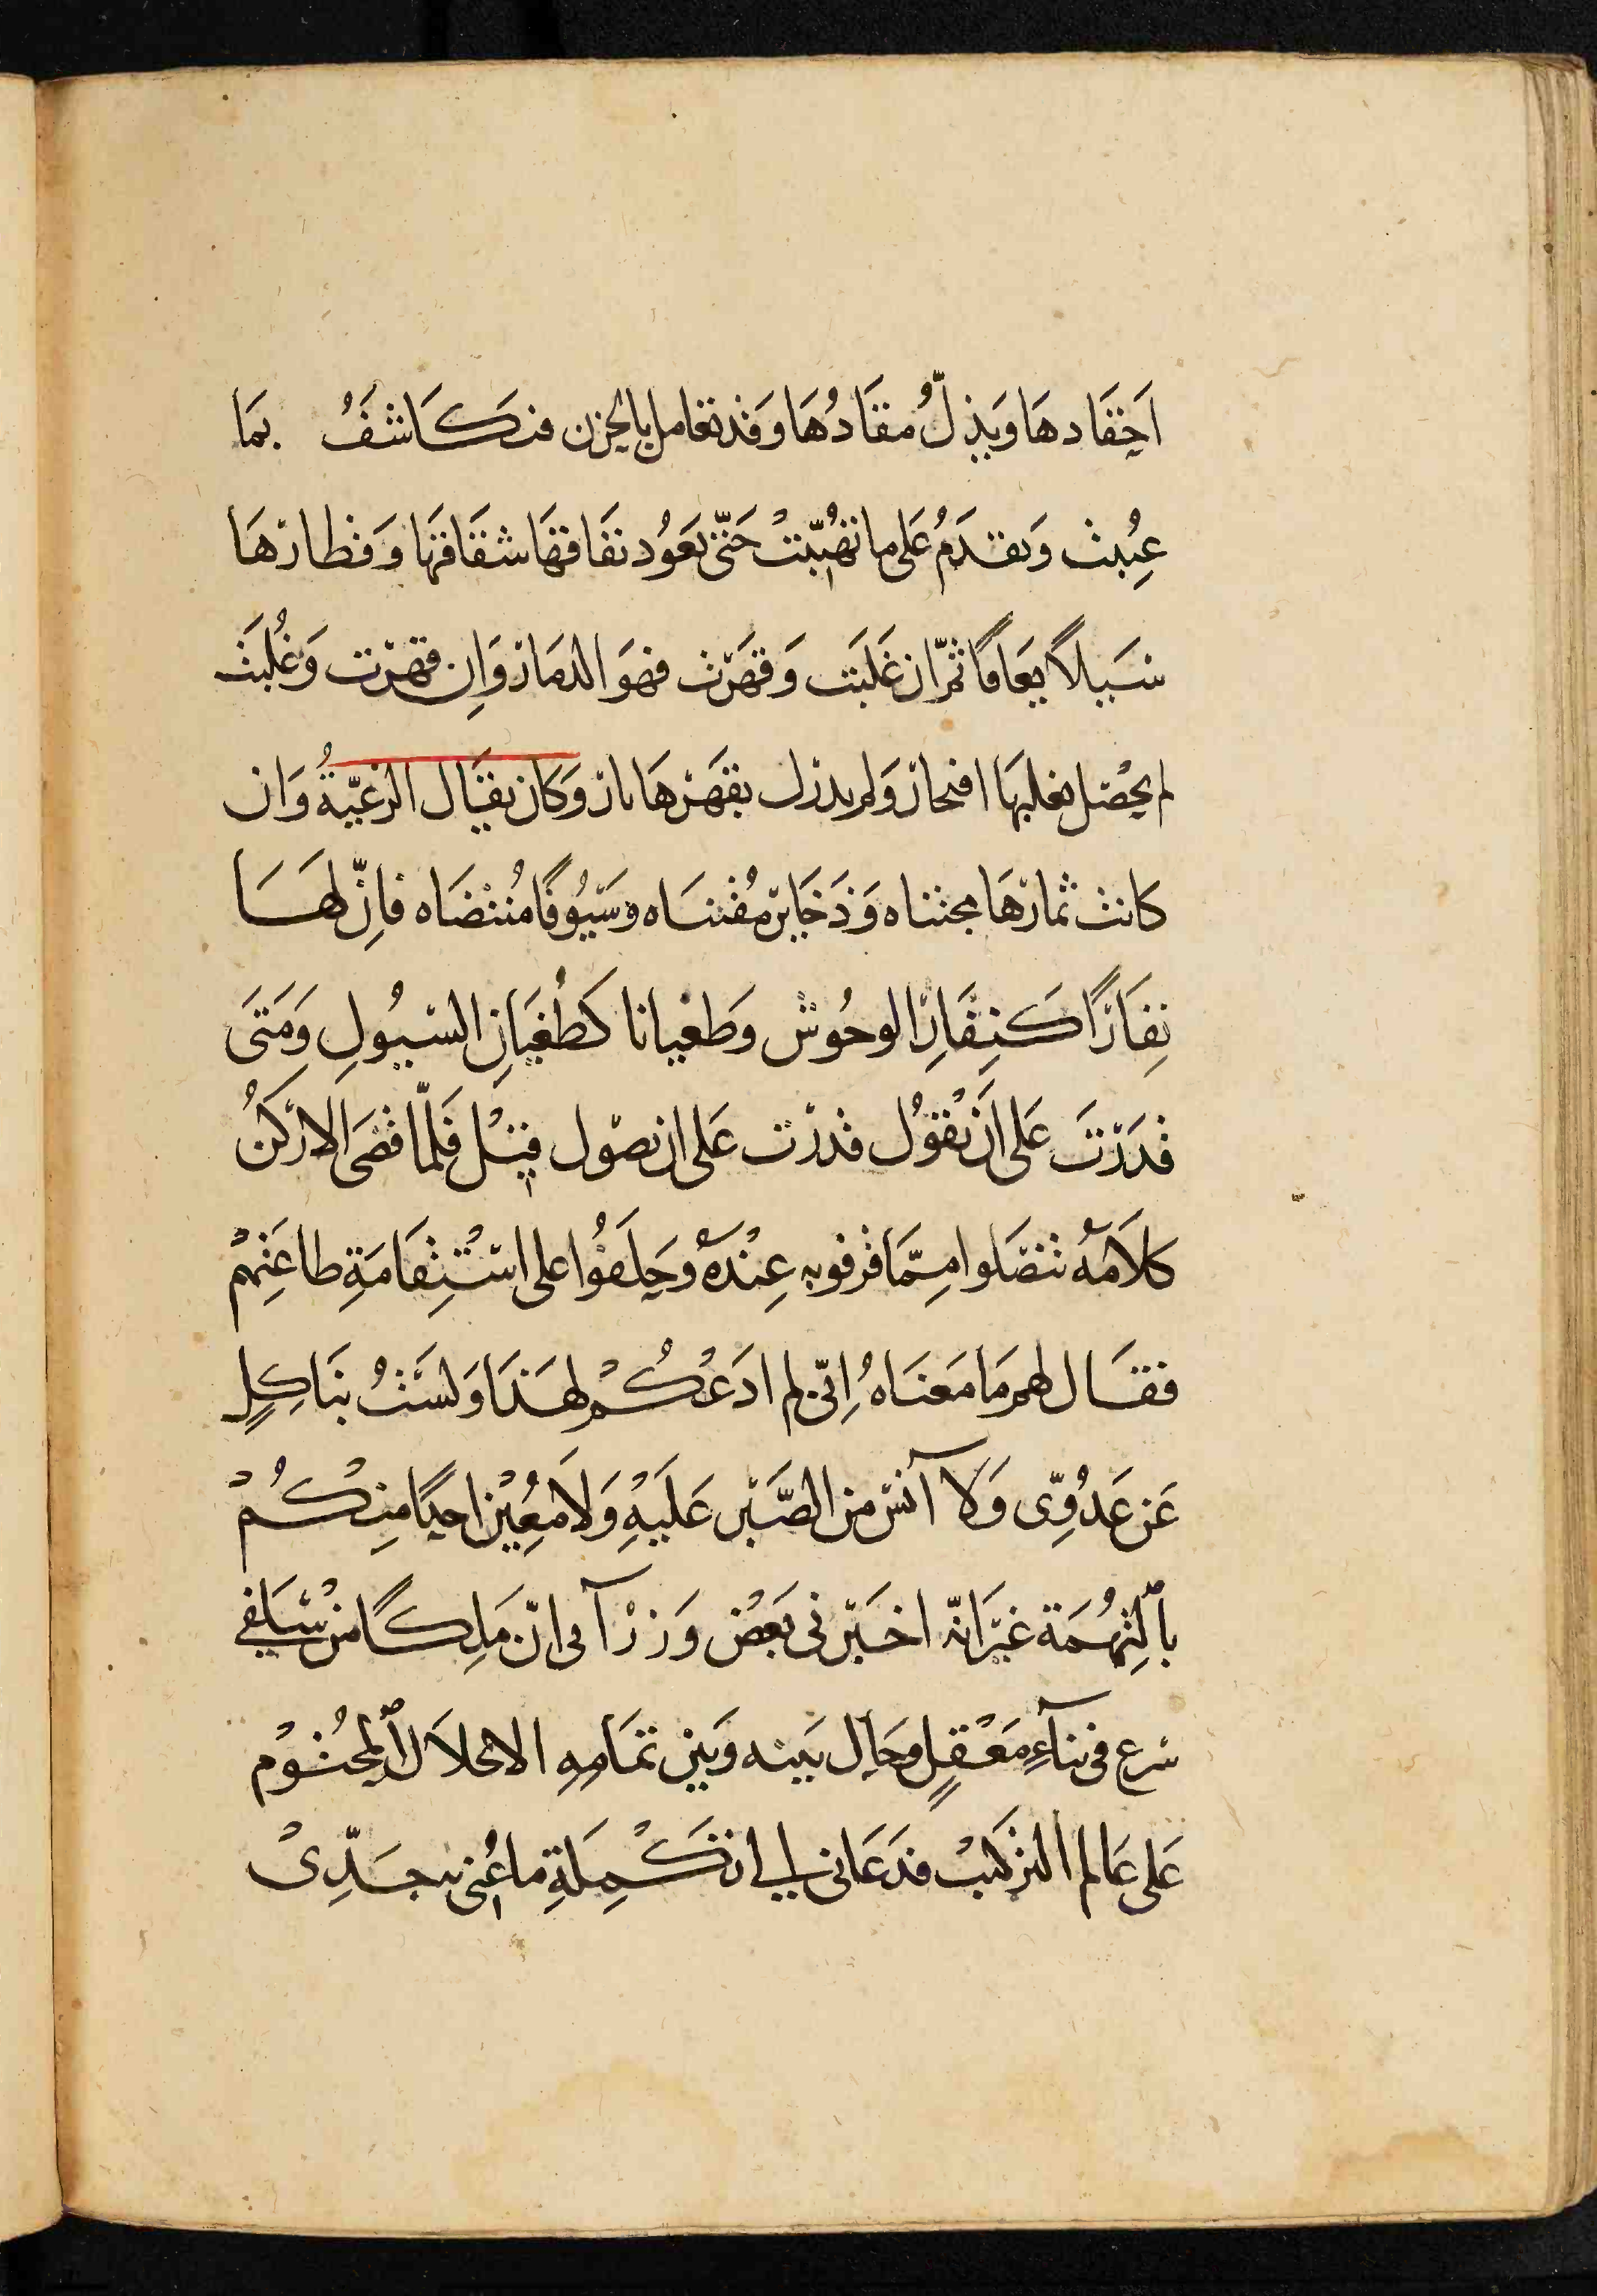 احقادها ويذلُّ مقادُها وقد تعامل بالحزن فتكاشفُ بما
عيبت وتقدمُ على ما تهيّبتْ حتّى يعود نفاقها شقاقها وقطارها
سيالًا بعاقًا ثمّ ان غلبَت وقهرَت فهو الدمار وان قهرت وغُلبَت
لم يحصل بغلبها افتخار ولم يدرك بقهرها ثار وكان يقال الرعيّةُ وان
كانت ثمارها مجتناه وذخاير مقتناه وسيُوفًا مُنتضاه فانّ لها
نِفارًا كنِفارِ الوحُوش وطغيانا كطُغيانِ السيُولِ ومتى
قدَرَتَ على اَن تقول قدرت على ان تصول قيل فلمّا قضى الاركن
كلامَهُ تنصّلوا ممّا قرفوا به عِنْدهُ وحلفوُا على استِقامةِ طاعتهِمْ
فقال لهم ما معناهُ اِنّى لم ادعكُمْ لهذا ولستُ بناكِلٍ
عن عدُوِّى ولا آنس من الصّبر عليْهِ ولا معيْن احدًا منكُمْ
باُلتهُمة غير انّه اخبرنى بعض وزرآى انّ ملِكًا من سلفى
شرع فى بنآءِ معْقِلٍ وحال بينه وبين تمامِهِ الانحلال المحتوُم
على عالم التركيب فدعانى الى ان تكْمِلةِ ما عُنى بِه جدِّىْ